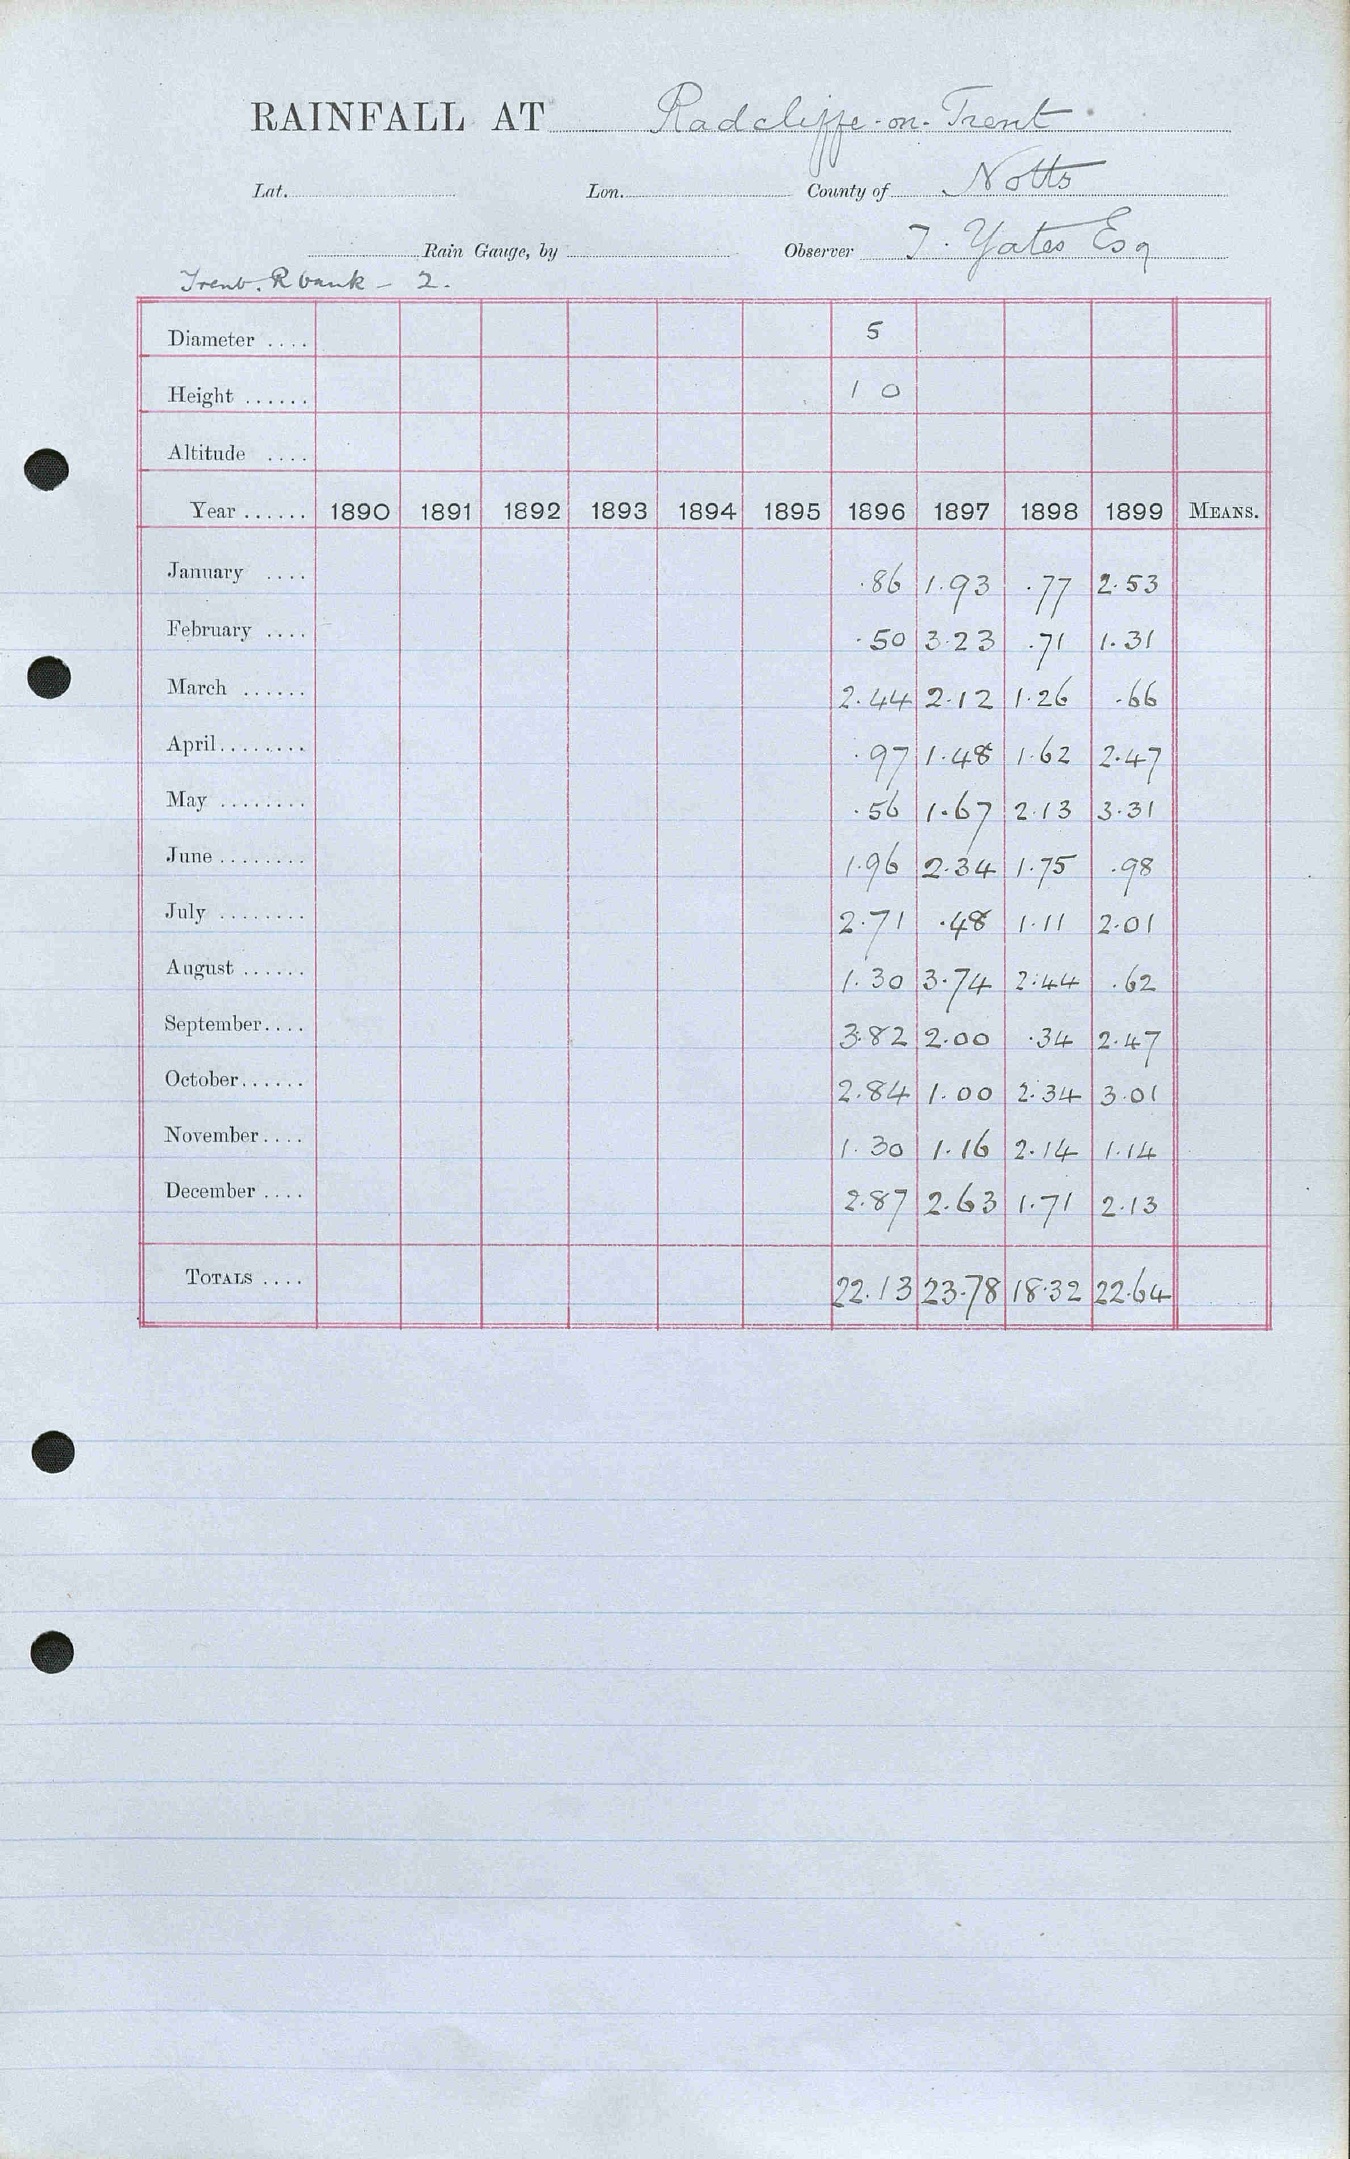 RAINFALL AT Radcliffe-on-Trent
Lat. Lon. County of Notts
Rain Gauge, by Observer T. Yates Esq
Trent. R bank - 2.
Diameter .... 5
Height ...... 1 0
Altitude ....
Year ...... 1890 1891 1892 1893 1894 1895 1896 1897 1898 1899 MEANS.
January .... .86 1.93 .77 2.53
February .... .50 3.23 .71 1.31
March ...... 2.44 2.12 1.26 .66
April........ .97 1.48 1.62 2.47
May ........ .56 1.67 2.13 3.31
June ........ 1.96 2.34 1.75 .98
July ........ 2.71 .48 1.11 2.01
August ...... 1.30 3.74 2.44 .62
September.... 3.82 2.00 .34 2.47
October...... 2.84 1.00 2.34 3.01
November.... 1.30 1.16 2.14 1.14
December .... 2.87 2.63 1.71 2.13
TOTALS .... 22.13 23.78 18.32 22.64